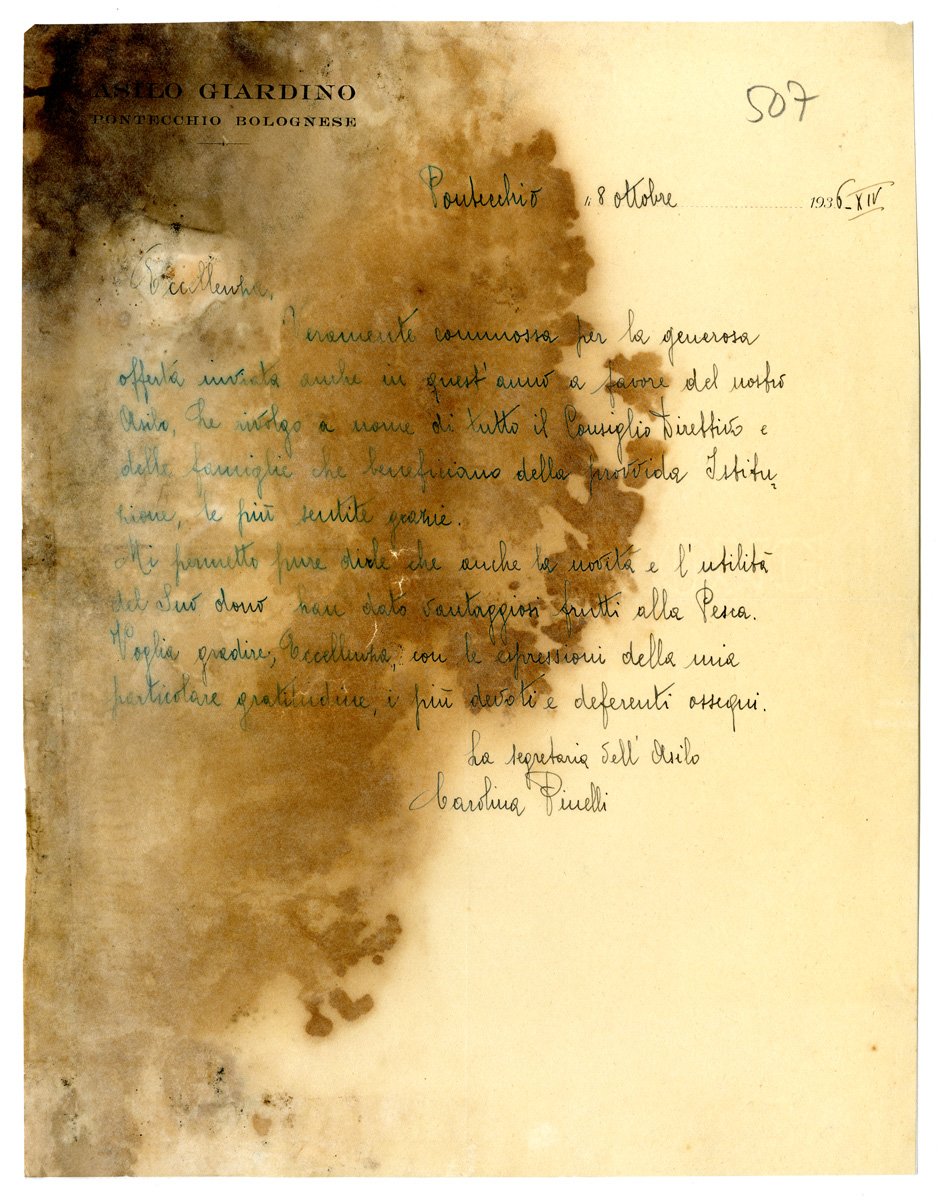 ASILO GIARDINO
PONTECCHIO BOLOGNESE
507
Pontecchio li 8 ottobre 1936-XIV
Eccellenza,
Veramente commossa per la generosa
offerta inviata anche in quest'anno a favore del nostro
Asilo, Le rivolgo a nome di tutto il Consiglio Direttivo e
delle famiglie che beneficiano della provvida Istitu-
zione, le più sentite grazie.
Mi permetto pure dirle che anche la novità e l'utilità
del Suo dono han dato vantaggiosi frutti alla Pesca.
Voglia gradire, Eccellenza, con le espressioni della mia
particolare gratitudine, i più devoti e deferenti ossequi.
La segretaria dell'Asilo
Carolina Pinelli